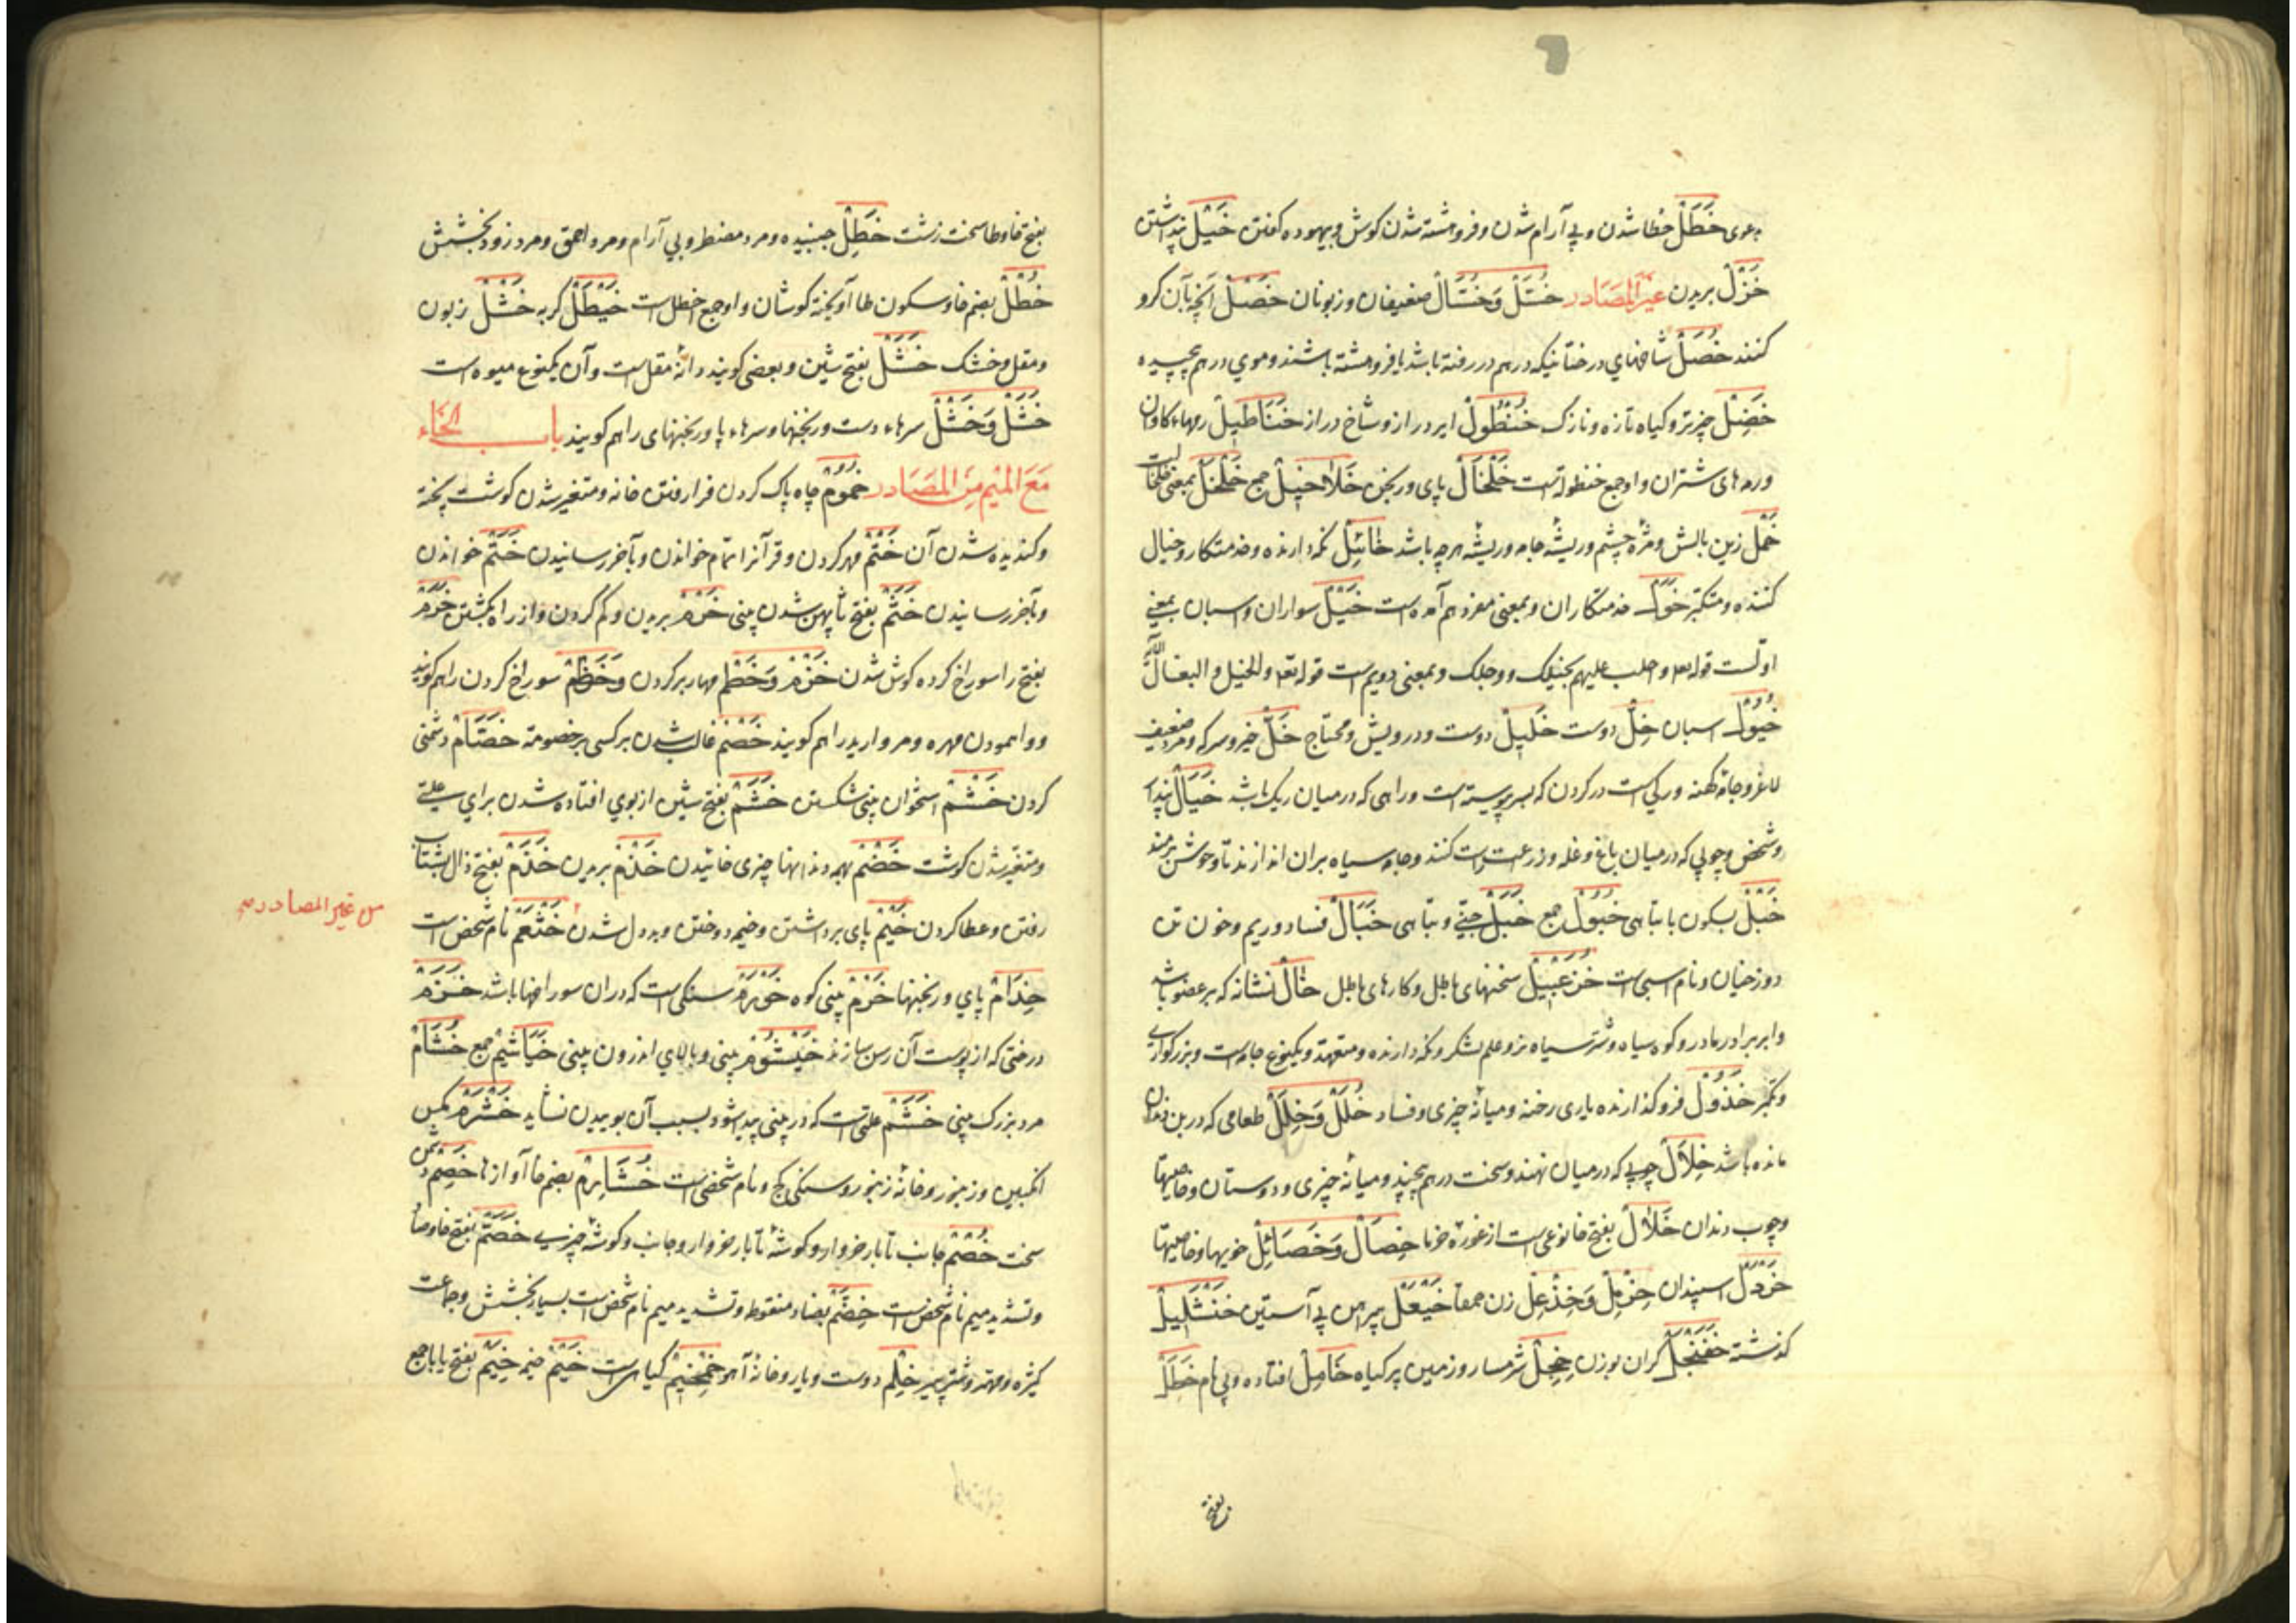 خَطَلْ خطا شدن و بی آرام شدن و فروهشته شدن کوش و بیهوده کفتن خَیْلْ پنداشتن
خَزْلْ بریدن غیر المصادر خُتَّلْ وَ خُتَّالْ ضعیفان و زبونان خَصْلْ آنچه بآن کرو
کنند خُصَلْ شاخهای درختانیکه در هم در رفته باشد یا فروهشته باشند و موی در هم پیچیده
خَضِلْ چیز تر و کیاه تازه و نازک خُنْطُولْ ایر دراز و شاخ دراز خَنَاطِیلْ رمهاء کاوان
ورمه های شتران و او جمع خنطوله است خَلْخَالْ پای ورنجن خَلَاخِیلْ جمع خَلْخَلْ بمعنی خلخال است
خَمْلْ زیر بالش و مژه چشم و ریشه جامه و ریشه هر چه باشد خَائِلْ نکه دارنده و خدمتکار و خیال
کننده و متکبر خَوَلْ خدمتکاران و بمعنی مفرد هم آمده است خَیْلْ سواران و اسبان بمعنی
اولست قوله تعه و اجلب علیهم بخیلک و رجلک و بمعنی دویم است قوله تعه و الخیل و البغال
خُیُولْ اسبان خِلّْ دوست خَلِیلْ دوست و درویش و محتاج خَلّْ خیر و سرکه و مرد ضعیف
لاغر و جامه کهنه و رکی است در کردن که بسر پیوسته است و راهی که در میان ریک باشد خَیَالْ پندار
و شخص و چوبی که در میان باغ و غله و زراعت راست کنند و جامه سیاه بران اندازند تا وحوش برمند
خَبْلْ بسکون با تباهی خُبُولْ جمع خَبَلْ جنّی و تباهی خَبَالْ فساد و ریم و خون تن
دوزخیان و نام اسبی است خُزَعْبِیلْ سخنهای باطل و کارهای باطل خَالْ نشانه که بر عضو باشد
و ابر برادر مادر و کوه سیاه و شتر سیاه نر و علم لشکر و نکه دارنده و متعهد و یکنوع جامه است و بزرکواری
و تکبر خَذُولْ فرو کذارنده یاری رخنه و میانه چیزی و فساد خُلَلْ وَ خِلَلْ طعامی که در بن دندان
مانده باشد خِلَالْ چوبی که در میان نهند و سخت در هم پیچند و میانه چیزی و دوستان و خاصیتها
و چوب دندان خَلَالْ بفتح خا نوعی است از غوره خرما خِصَالْ وَ خَصَائِلْ خویها و خاصیتها
خَرْدَلْ اسپندان خِزْمِلْ وَ خِذْعِلْ زن حمقا خَیْعَلْ پیراهن بی آستین خَنْشَلِیلْ
کذشته خَفَنْجَلْ کران بوزن خَجِلْ شرمسار و زمین پر کیاه خَامِلْ افتاده و بی نام خَطَلْ
بفتح
بفتح خا و طا سخت زشت خَطِلْ جنبیده و مرد مضطر و بی آرام و مرد احمق و مرد زود بخشش
خُطْلْ بضم خا و سکون طا آویخته کوشان و او جمع اخطل است خَیْطَلْ کربه خَشْلْ زبون
و مقل و خشک خَشَلْ بفتح شین و بعضی کویند دانه مقل است و آن یکنوع میوه است
خَشْلْ وَ خَشَلْ سرهاء دست ورنجنها و سرهاء پا ورنجنهای را هم کویند باب الخاء
مَعَ الْمِیْمِ مِنَ الْمَصَادر خُمُومْ چاه پاک کردن فرا رفتن خانه و متغیر شدن کوشت پخته
و کندیده شدن آن خَتْمْ مهر کردن و قرآنرا تمام خواندن و بآخر رسانیدن خَتْمْ خواندن
و بآخر رسانیدن خَثَمْ بفتح ثا پهن شدن بینی خَرْمْ بریدن و کم کردن و از راه بکشتن خَرَمْ
بفتح را سوراخ کرده کوش شدن خَزْمْ وَ خَطْمْ مهار بر کردن وَ خَطْمْ سوراخ کردن را هم کویند
و واهمودن مهره و مروارید را هم کویند خَصْمْ غالب شدن بر کسی بخصومة خِصَامْ دشمنی
کردن خَشْمْ استخوان بینی شکستن خَشَمْ بفتح شین از بوی افتاده شدن برای علتی
و متغیر شدن کوشت خَضْمْ بهمه دندانها چیزی خائیدن خَذْمْ بریدن خَذَمْ بفتح ذال بشتاب
رفتن و عطا کردن خَیْمْ پای برداشتن و خیمه دوختن و بددل شدن خَثْعَمْ نام شخص است
من غیر المصادر
خِدَامْ پای ورنجنها خَرْمْ بینی کوه خَوْرَمْ سنکی است که دران سوراخها باشد خَزَمْ
درختی که از پوست آن رسن سازند خَیْشُومْ بینی و بالای اندرون بینی خَیَاشِیْمْ جمع خُشَامْ
مرد بزرک بینی خَشَمْ علتی است که در بینی پیدا شود بسبب آن بوییدن نشاید خَشْرَمْ مکس
انکبین و زنبور و خانه زنبور و سنکی کچ و نام شخصی است خُشَارِمْ بضم خا آوازها خَصِمْ دشمن
سخت خُصْمْ جانب تا بار خروار و کوشه تا بار خروار و جانب و کوشه چیزی خَصَّمْ بفتح خا و صاد
و تشدید میم نام شخص است خِضَمّْ بضاد منقوط و تشدید میم نام شخص است بسیار بخشش و جماعت
کثیره و مهتر و شتر پیر خِلْمْ دوست و یار و خانه آهو خِمْخِمْ کیاهی است خَیْمْ خیمه خِیَمْ بفتح یا جمع